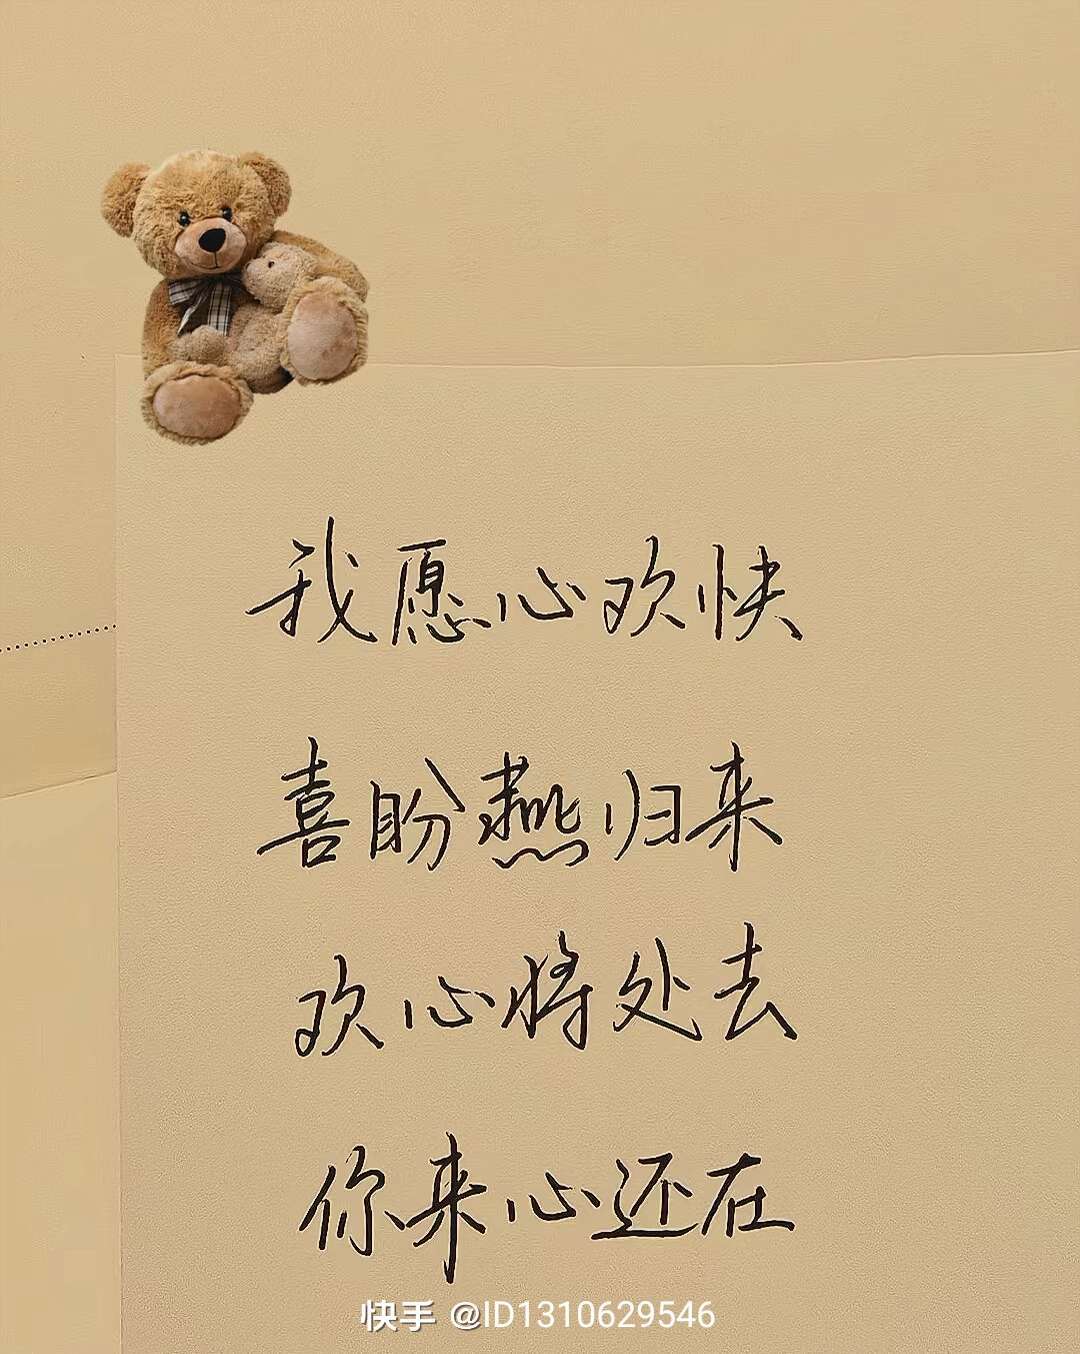 我愿心欢快
喜盼燕归来
欢心将处去
你来心还在
快手 @ID1310629546